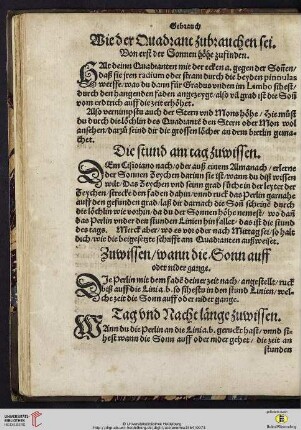 Gebrauch
Wie der Quadrant zubrauchen sei.
Von erst der Sonnen höhe zufinden.
HAlt deinn Quadranten mit der ecken a. gegen der Sonnen/
daß sie jren radium oder stram durch die beyden pinnulas
werffe/ was du dann für Gradus vnden im Limbo sihest/
durch den hangenden faden angezeygt/ also vil grad ist die Soñ
vom erdtrich auff die zeit erhöhet.
Also vernimpstu auch der Stern vnd Mons höhe/ Die můst
du durch die löchlin des Quadranten den Stern oder Mon wol
ansehen/ darzů seind dir die grossen löcher an dem
gemachet.
Die stund am tag zuwissen.
DEm Cisioiano nach/ oder auß einem Almanach/ erlerne
der Sonnen Zeychen darinn sie ist/ wann du diß wissen
wilt. Das Zeychen vnd seinn grad suche in der leyter der
Zeychen/ strecke den faden dahin/ vnnd ruck das Perlin
auff den gefunden grad/ laß dir darnach die Soñ scheinē durch
die löchlin wie vorhin/ da du der Sonnen höhe nemest/ wo dañ
das Perlin vnder den stunden Linien hinfallet/ das ist die stund
des tags. Merck aber/ wo es vor oder nach Mittag sei/ so halt
dich/ wie die beigesetzte schrifft am Quadranten außweiset.
Zuwissen/ wann die Sonn auff
oder nider gange.
DJe Perlin mit dem fadē deiner zeit nach/ angestellt/ ruck
biß auff die Lini a.b. so sihestu in den stund Linien/ wel-
che zeit die Sonn auff oder nider gange.
Tag vnd Nacht länge zuwissen.
WAnn du die Perlin an die Lini a.b. geruckt hast/ vnnd si-
hest wann die Sonn auff oder nider gehet/ die zeit an
stunden